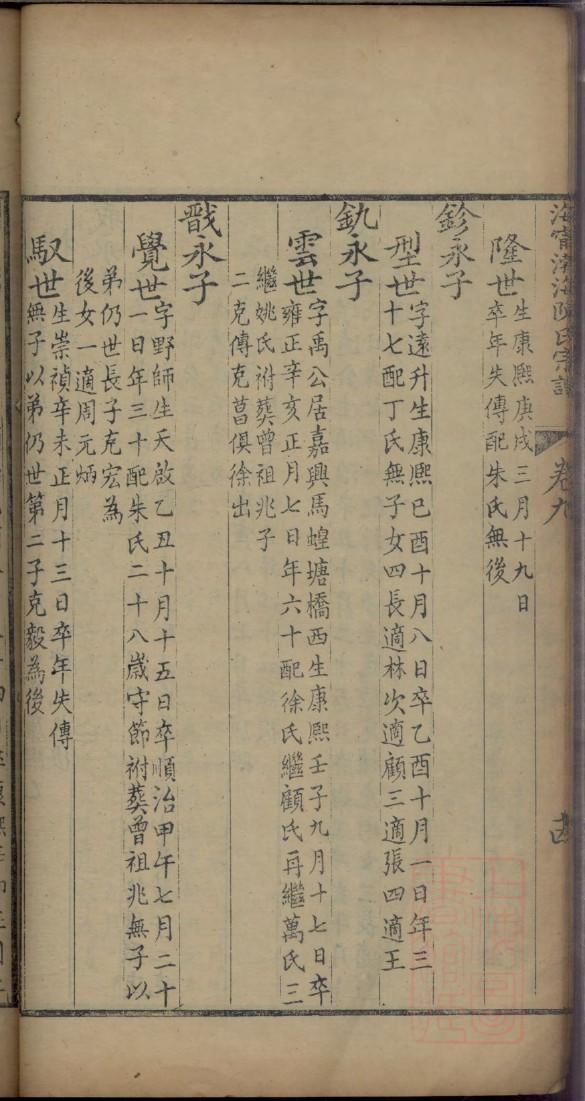 海寧渤海陳氏宗譜
卷九
隆世
生康熙庚戌三月十九日
卒年失傳配朱氏無後
鉁永子
型世
字遠升生康熙己酉十月八日卒乙酉十月一日年三
十七配丁氏無子女四長適林次適顧三適張四適王
釚永子
雲世
字禹公居嘉興馬蝗塘橋西生康熙壬子九月十七日卒
雍正辛亥正月七日年六十配徐氏繼顧氏再繼萬氏三
繼姚氏祔葬曾祖兆子
二克傳克菖俱徐出
戩永子
覺世
字野師生天啟乙丑十月十五日卒順治甲午七月二十
一日年三十配朱氏二十八歲守節祔葬曾祖兆無子以
弟仍世長子克宏為
後女一適周元炳
馭世
生崇禎辛未正月十三日卒年失傳
無子以弟仍世第二子克毅為後